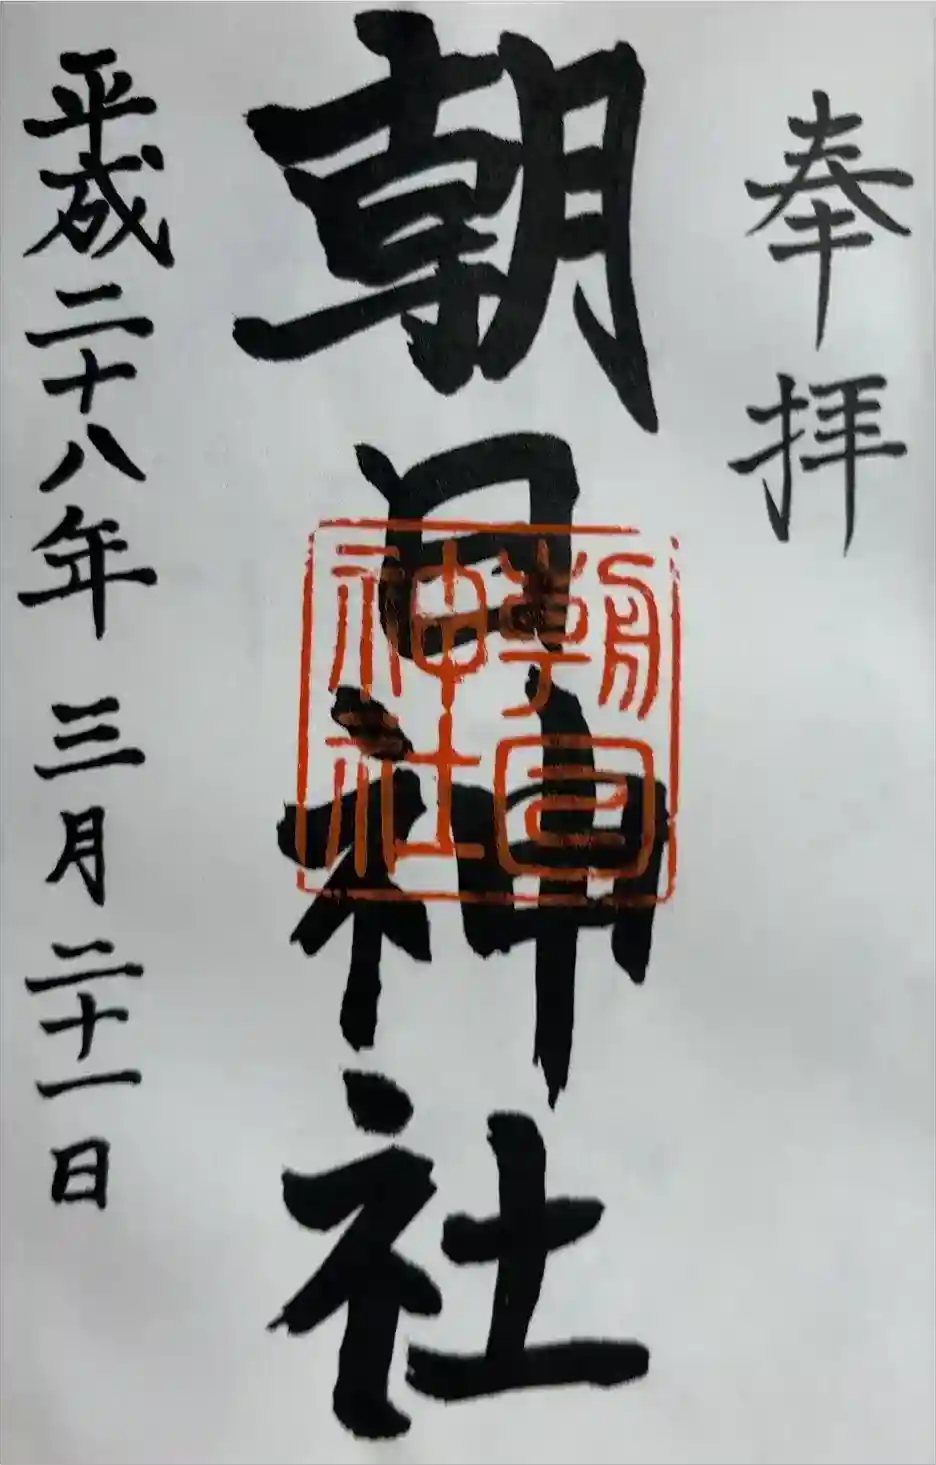 奉拝
朝日神社
朝日
神社
平成二十八年 三月二十一日